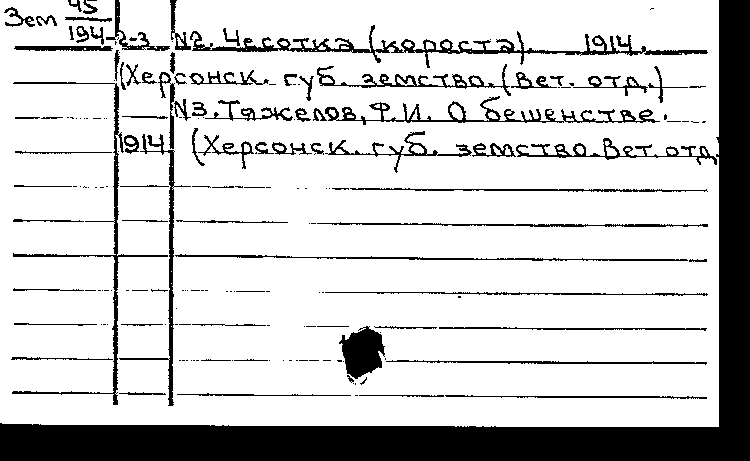 Зем 45
194-2-3 N2. Чесотка (короста). 1914.
(Херсонск. губ. земство. (Вет. отд.)
N3. Тяжелов, Ф.И. О бешенстве.
1914 (Херсонск. губ. земство. Вет. отд.